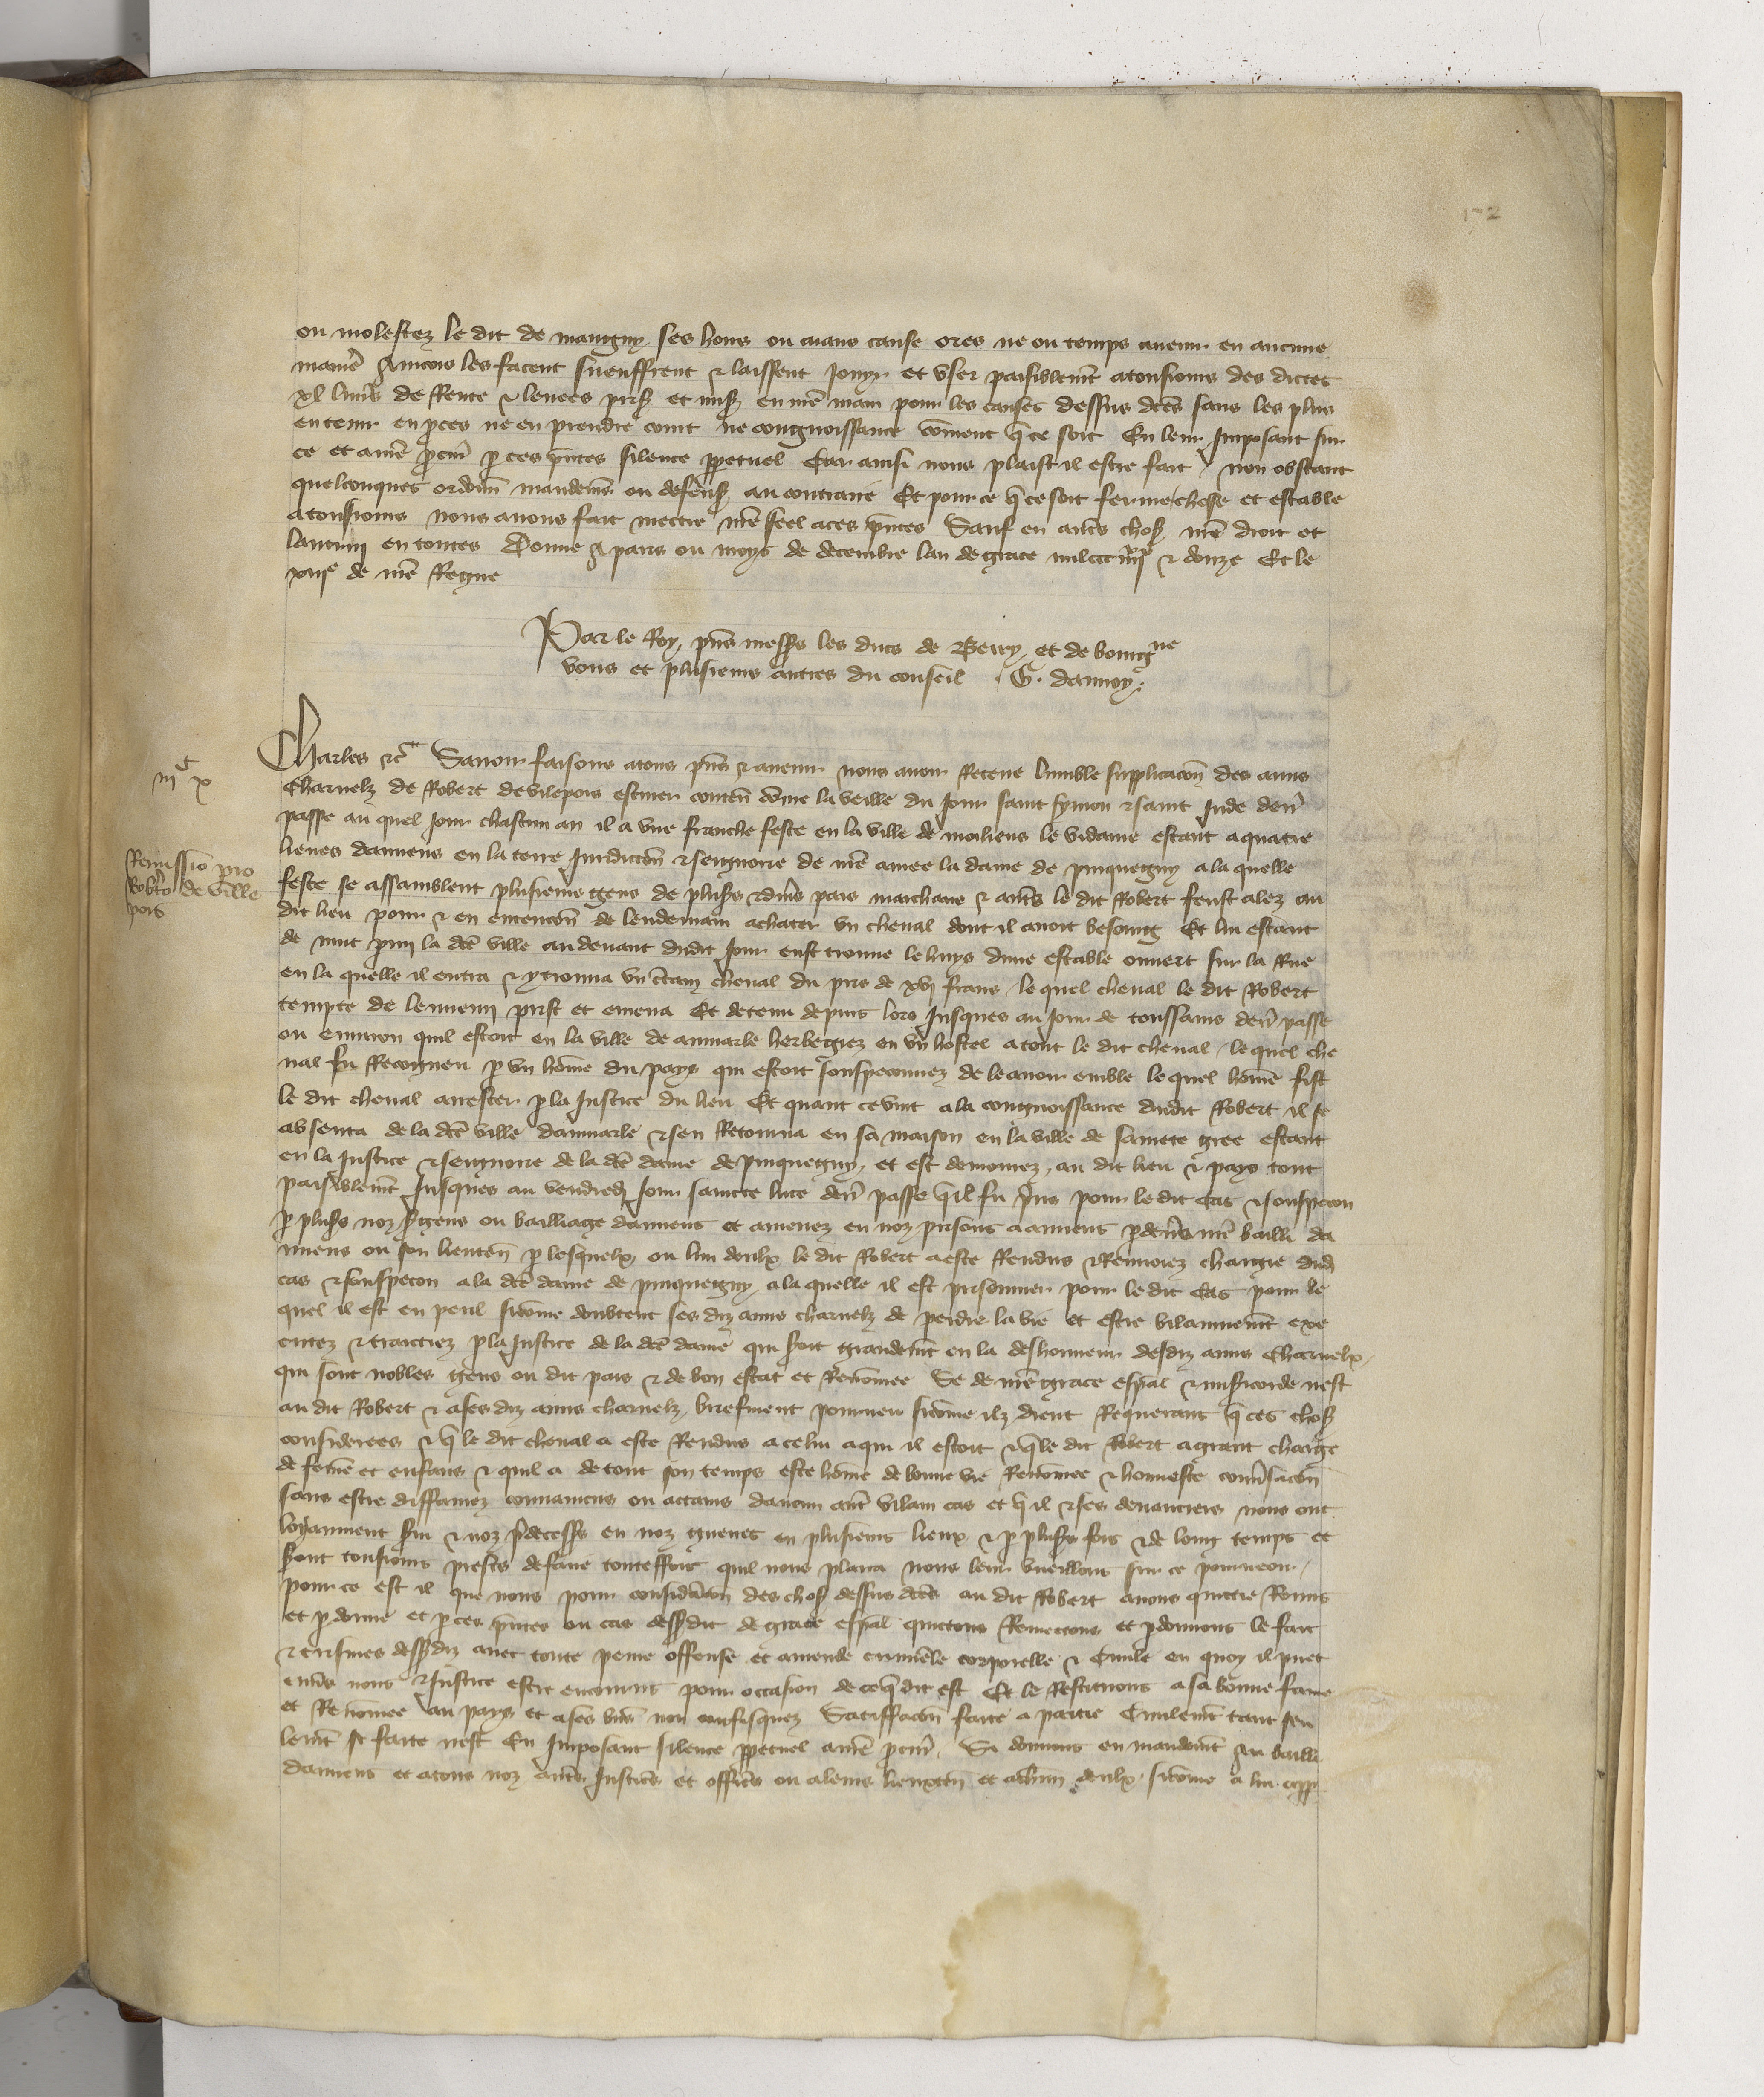 172
ou molestez le dit de mangny ses hoirs ou aians cause ores ne ou temps avenir en aucune
manie᷑ Aincois les facent sueuffrent & laissent Joyr et user paisiblemt̃ atousiours des dictes
xl livr̃s de Rente & levees prs̃ et mis̃ en nr̃e main pour les causes dessus dc̃es sans les plus
entenir en ꝓces ne en prendre court ne congnoissance coment q̃ ce soit En leur Imposant sur
ce et a nr̃e ꝓcur̃ ꝑ ces p̃ntes silence ꝑpetuel Car ainsi nous plaist il estre fait / non obstant
quelconques ordonn̄ mandemẽs ou defens̃ au contraire Et pour ce q̃ ce soit ferme chose et estable
atousiours nous avons fait mectre nr̃e seel aces p̃ntes Sauf en autr̃s chos̃ nr̃e droit et
lautruy en toutes Donne A paris ou moys de decembre lan de grace mil ccc iiiixx & douze Et le
xiiie de nr̃e Regne
Par le Roy, pñs mess̃rs les ducs de Berry et de bourgne
vous et plusieurs autres du conseil . G. dannoy.
iiic x
Charles &c̃ Savoir faisons atous pñs & avenir nous avoir Receue lumble supplicacõn des amis
Charnelz de Robert devilepois escuier conteñ cõme la veille du Jour saint symon & saint Jude deñr
passe au quel Jour chascun an il a une franche feste en la ville de moiliens le vidame estant a quatre
Remissio pro
Robt̃o de ville
pois
lieues damiens en la terre Juridicõn & seignorie de nr̃e amee la dame de pinquegny a la quelle
feste se assamblent plusieurs gens de plus̃rs & divr̃s pais marchans & autr̃s le dit Robert feust alez au
dit lieu pour & en entencõn de lendemain achater un cheval dont il avoit besoing Et lui estant
de nuit ꝑmy la dc̃e ville au devant dudit Jour eust trouve le huys dune estable ouvert sur la Rue
en la quelle il entra & y trouva un c̃tain cheval du pris de xvj frans / le quel cheval le dit Robert
tempte de lennemy prist et emena Et detenu depuis lors Jusques au Jour de toussains deñr passe
ou environ quil estoit en la ville de aumarle herbegiez en un hostel atout le dit cheval / le quel che
val fu Recogneu ꝑ un hõme du pays qui estoit souspeconnez de le avoir emble le quel hõme fist
le dit cheval arrester ꝑ la Justice du lieu Et quant ce vint a la congnoissance dudit Robert il se
absenta de la dc̃e ville daumarle & sen Retourna en sa maison en la ville de sainete gree estant
en la Justice & seignorie de la dc̃e dame de pinquegny, et est demourez, au dit lieu & pays tout
paisiblemt̃ Jusques au vendredi Jour saincte luce deñr passe q̃ il fu p̃ns pour le dit cas & souspecon
ꝑ plus̃rs noz s̃rgens ou bailliage damiens et amenez en noz prisons a amiens ꝑdevr̃s nr̃e bailli da
miens ou son lieuteñ ꝑ lesquelx ou lun deulx le dit Robert a este Rendus & Renvoiez chargie dud
cas & souspecon a la dc̃e dame de pinquegny a la quelle il est prisonnier pour le dit cas pour le
quel il est en peril sicõme doubtent ses diz amis charnelz de perdre la vie et estre vilainnemt̃ exe
cutez & traictiez ꝑ la Justice de la dc̃e dame qui seroit grandemt̃ en la deshonneur desdiz amis Charnelx,
qui sont nobles gens ou dit pais & de bon estat et Renõmee Se de nr̃e grace esp̃al & mis̃icorde nest
au dit Robert & ases diz amis charnelz briefment pourveu sicõme ilz dient Requerant q̃ ces chos̃
considerees & q̃ le dit cheval a este Rendus a celui a qui il estoit & q̃ le dit Robert a grant charge
de femẽ et enfans & quil a de tout son temps este hõme de bonne vie Renõmee & honneste convr̃sacõn
sans estre diffamez convaincus ou actains daucun autr̃ vilain cas et q̃ il & ses devanciers nous ont
loyaument s̃vi & noz p̃decess̃rs en noz guerres en plusieurs lieux & ꝑ plus̃rs fois & de long temps et
sont tousiours prests de faire touteffois quil nous plaira nous leur vueillons sur ce pourveoir,
pour ce est il que nous pour considac̃on des chos̃ dessus dc̃es au dit Robert avons quictie Remis
et ꝑdonne et ꝑ ces p̃ntes ou cas dess̃dit de grace esp̃al quictons Remectons et ꝑdonnons le fait
& crismes dess̃diz avec toute peine offense et amende criminele corporelle & Civile en quoy il puet
envr̃s nous & Justice estre encourus pour occasion de ce q̃ dit est Et le Restituons a sa bonne fame
et Renõmee au pays et ases biẽs non confisquez Satiffacõn faicte a partie Civilemt̃ tant seu
lemt̃ se faicte nest En Imposant silence ꝑpetuel a nr̃e ꝓcur̃. Si donnons en mandemt̃ au bailli
damiens et atous noz autr̃s Justiciẽs et officiẽs ou aleurs lieuxteñ et achũn deulx sicõme a lui app